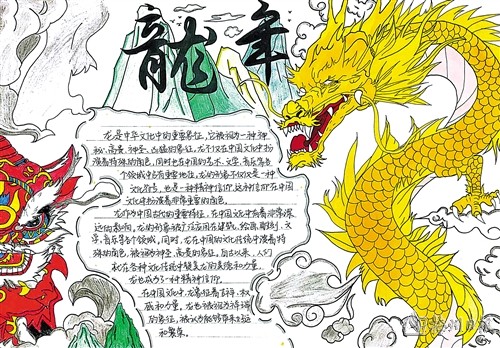 龍年
龙是中华文化中的重要象征，它被视为一种神
秘、高贵、神圣、吉祥的象征，龙不仅在中国文化中扮
演着特殊的角色，同时也在中国的艺术、文学、音乐等各
个领域中占有重要地位。龙的形象不仅仅是一种
文化符号，也是一种精神信仰，这种信仰在中国
文化中扮演着非常重要的角色。
龙作为中国古代的重要特征，在中国文化中有着非常深
远的影响，龙的形象被广泛应用在建筑、绘画、雕刻、文
学、音乐等各个领域，同时，龙在中国的文化传统中演着特
殊的角色，被视为神圣、高贵的象征，自古以来，人们
就在各种文化传统中赞美龙的美德和力量，
龙也成为了一种精神信仰。
在中国文化中，龙象征着尊严、权
威和力量，龙也被视为诗词
的象征，被认为能够带来
和繁荣。